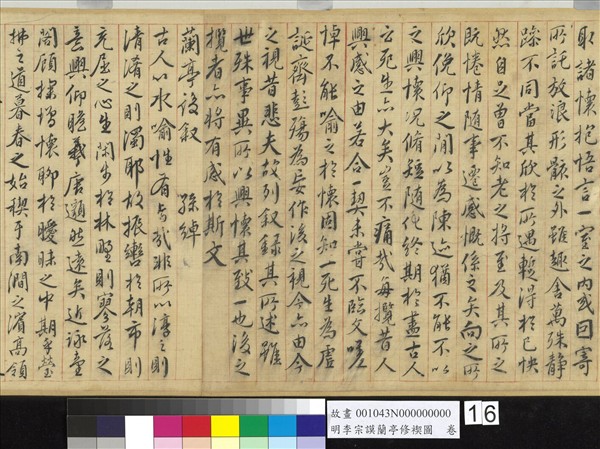 取諸懷抱悟言一室之內或因寄
所託放浪形骸之外雖趣舍萬殊靜
躁不同當其欣於所遇暫得於己快
然自足曾不知老之將至及其所之
既惓情隨事遷感慨係之矣向之所
欣俛仰之間以為陳迹猶不能不以
之興懷況脩短隨化終期於盡古人
云死生亦大矣豈不痛哉每攬昔人
興感之由若合一契未嘗不臨文嗟
悼不能喻之於懷固知一死生為虛
誕齊彭殤為妄作後之視今亦由今
之視昔悲夫故列敘錄其所述雖
世殊事異所以興懷其致一也後之
攬者亦將有感於斯文
蘭亭後敘 孫綽
古人以水喻性有旨哉非所以渟之則
清淆之則濁耶故振轡於朝市則
充屈之心生閑步於林野則寥落之
意興仰瞻羲唐邈然遠矣近詠臺
閣顧探增懷聊於曖昧之中期乎瑩
拂之道暮春之始禊于南澗之濱高嶺
故畫 001043N000000000
明李宗謨蘭亭修禊圖 卷
16